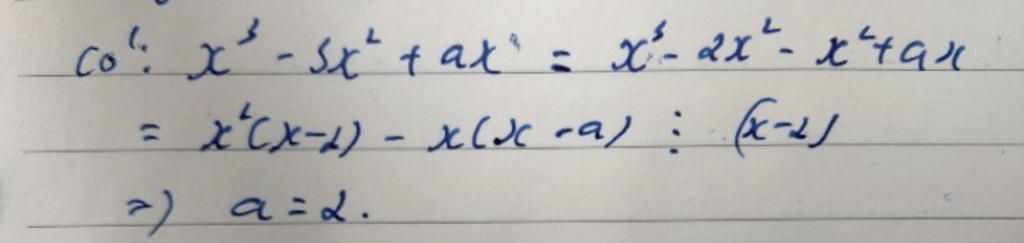 Có: x³ - 3x² + ax = x³ - 2x² - x² + ax
= x²(x-2) - x(x-a) ⋮ (x-2)
=> a = 2.